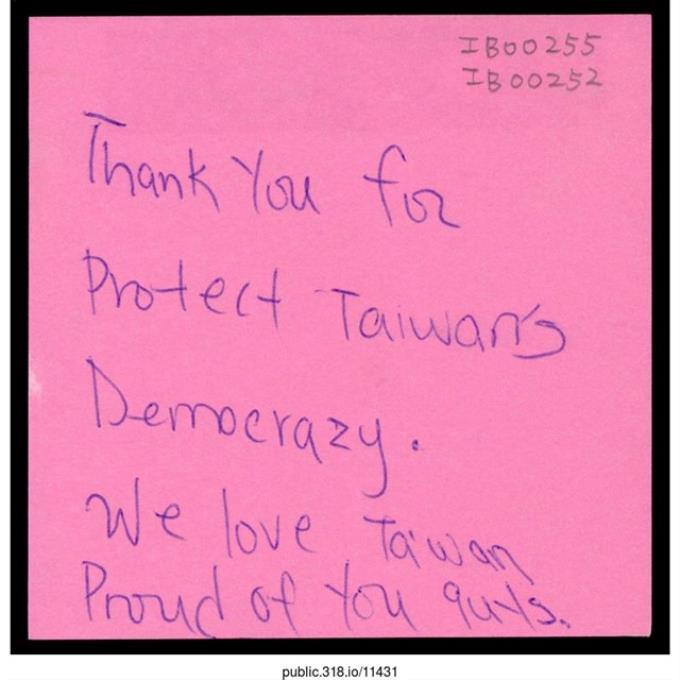 IB00255
IB00252
Thank You for
Protect Taiwan's
Democrazy.
We love Taiwan
Proud of You guys.
public.318.io/11431